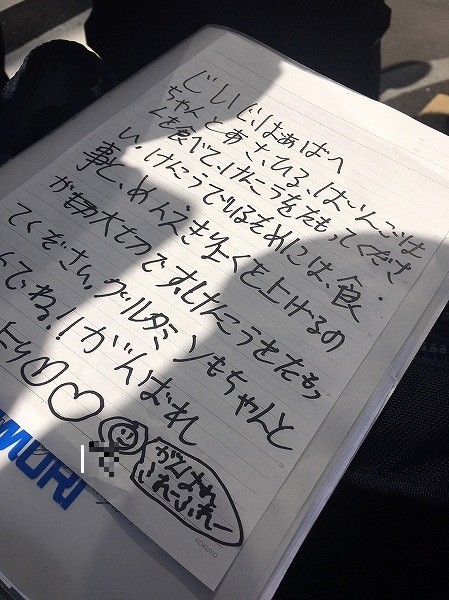 じいじ、ばあばへ
ちゃんとあさ、ひる、ばんごは
んを食べて、けんこうをたもってくださ
い。けんこうでいるためには、食
事と、めんえき力をくと上げるの
が大切です。けんこうをたもっ
てくだささい。グルタミンもちゃんと
てね!がんばれ
より♡♡
がんばれ
ふれーふれー
MORI
KOKUYO